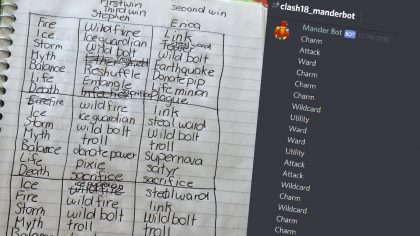 First win
Third win
Second win
Stephen
Erica
Fire wild fire Link
Ice ice guardian
Storm wild bolt wild bolt
Myth earthquake
Balance Reshuffle Donate pip
Life Entangle life minion
Death plague
Ice wild fire link
Fire ice guardian steal ward
Storm wild bolt wild bolt
Myth troll troll
Balance donate power Supernova
Life pixie satyr
Death sacrifice sacrifice
Ice steal ward
Fire wild fire link
Storm wild bolt wild bolt
Myth troll troll
Balance
clash18_manderbot
Mander Bot BOT
Charm
Charm
Attack
Ward
Charm
Charm
Wildcard
Utility
Ward
Ward
Utility
Attack
Attack
Wildcard
Charm
Wildcard
Charm
Charm